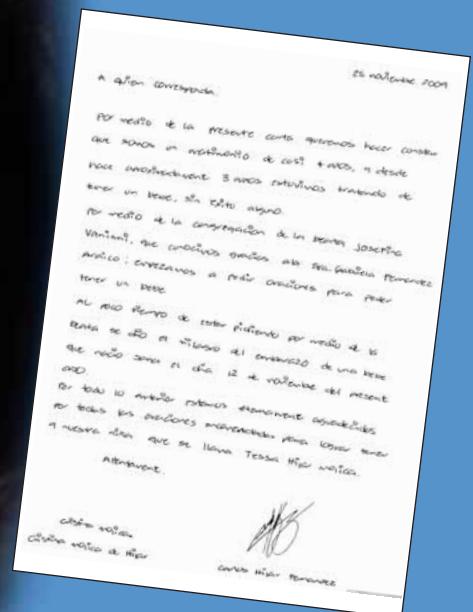 25 noviembre 2009
A quien corresponda.
Por medio de la presente carta queremos hacer constar
que somos un matrimonio de casi 4 años, y desde
hace aproximadamente 3 años estuvimos tratando de
tener un bebe, sin exito alguno.
Por medio de la congregación de la beata Josefina
Vannini, que conocimos gracias a la Sra. Gabriela Fernandez
; empezamos a pedir oraciones para poder
tener un bebe.
Al poco tiempo de estar pidiendo por medio de la
beata se dio el milagro del embarazo de una bebe
que nació sana el día 12 de noviembre del presente
año.
Por todo lo anterior estamos eternamente agradecidos
por todas las oraciones para lograr tener
a nuestra niña que se llama Tessa Hijar
Atentamente.
Cristina
Cristina de Hijar
Carlos Hijar Fernandez